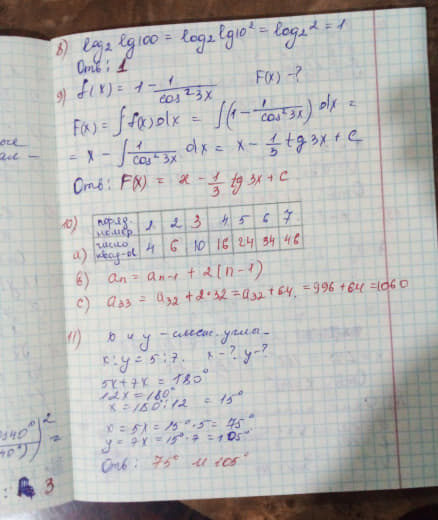 8) log₂ lg100 = log₂ lg10² = log₂ 2 = 1
Отв: 1
9) f(x) = 1 - 1/cos²3x F(x) - ?
F(x) = ∫ f(x) dx = ∫(1 - 1/cos²3x) dx =
= x - ∫ 1/cos²3x dx = x - 1/3 tg 3x + C
Отв: F(x) = x - 1/3 tg 3x + C
10)
а) поряд. номер 1 2 3 4 5 6 7
число квад-ов 4 6 10 16 24 34 46
в) aₙ = aₙ₋₁ + 2(n-1)
с) a₃₃ = a₃₂ + 2·32 = a₃₂ + 64 = 996 + 64 = 1060
11) x и y - смеж. углы
x : y = 5 : 7. x - ? y - ?
5x + 7x = 180°
12x = 180°
x = 180 : 12 = 15°
x = 5x = 15°·5 = 75°
y = 7x = 15°·7 = 105°
Отв: 75° и 105°
3